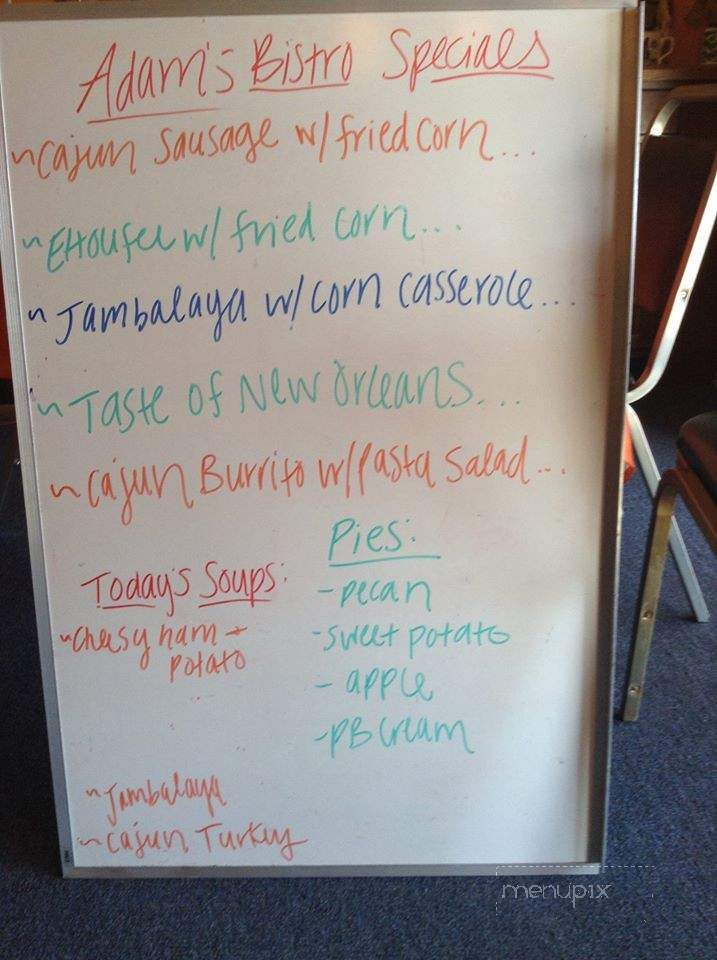 Adam's Bistro Specials
~Cajun Sausage w/ fried corn...
~Ettoufee w/ fried corn...
~Jambalaya w/ corn casserole...
~Taste of New Orleans...
~Cajun Burrito w/ Pasta Salad...
Today's Soups:
~Cheesy ham +
potato
~Jambalaya
~Cajun Turkey
Pies:
-pecan
-sweet potato
-apple
-PB Cream
menupix